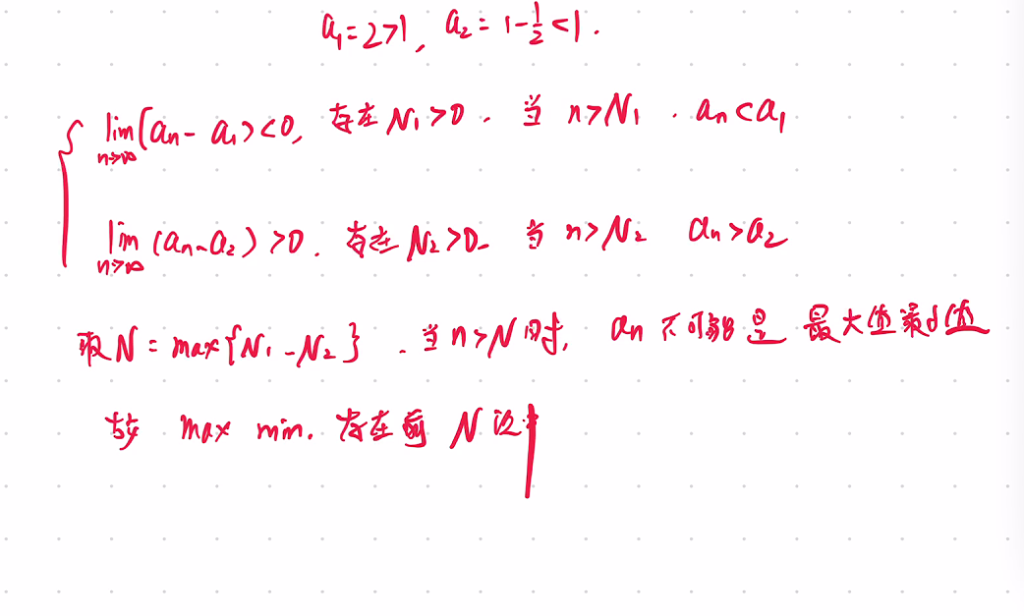 a₁=2>1, a₂=1-½<1.
lim(aₙ-a₁)<0, 存在N₁>0. 当 n>N₁. aₙ<a₁
n→∞
lim(aₙ-a₂)>0. 存在N₂>0. 当 n>N₂ aₙ>a₂
n→∞
取N=max{N₁-N₂}. 当n>N时, aₙ不可能是 最大值最小值
故 max min. 存在前 N 次